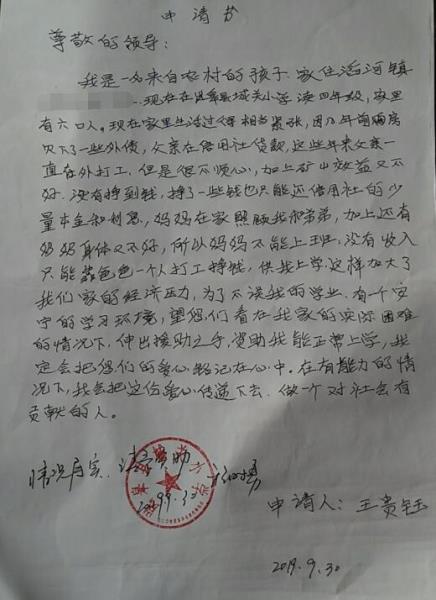 申请书
尊敬的领导：
我是一名来自农村的孩子.家住滔河镇
现在在县城关小学读四年级,家里
有六口人。现在家里生活过得相当紧张,因几年前盖房
欠下了一些外债,父亲在信用社贷款,这些年来父亲一
直在外打工,但是很不顺心,加上矿山效益又不
好.没有挣到钱,挣了一些钱也只能还信用社的少
量本金和利息,妈妈在家照顾我和弟弟,加上还有
奶奶身体又不好,所以妈妈不能上班,没有收入
只能靠爸爸一个人打工挣钱,供我上学这样加大了
我们家的经济压力,为了不误我的学业.有一个安
宁的学习环境,望您们看在我家的实际困难
的情况下,伸出援助之手,资助我能正常上学,我
定会把您们的爱心铭记在心中。在有能力的情
况下,我会把这份爱心传递下去.做一个对社会有
贡献的人。
情况属实.请资助
申请人：王贵钰
2019.9.30